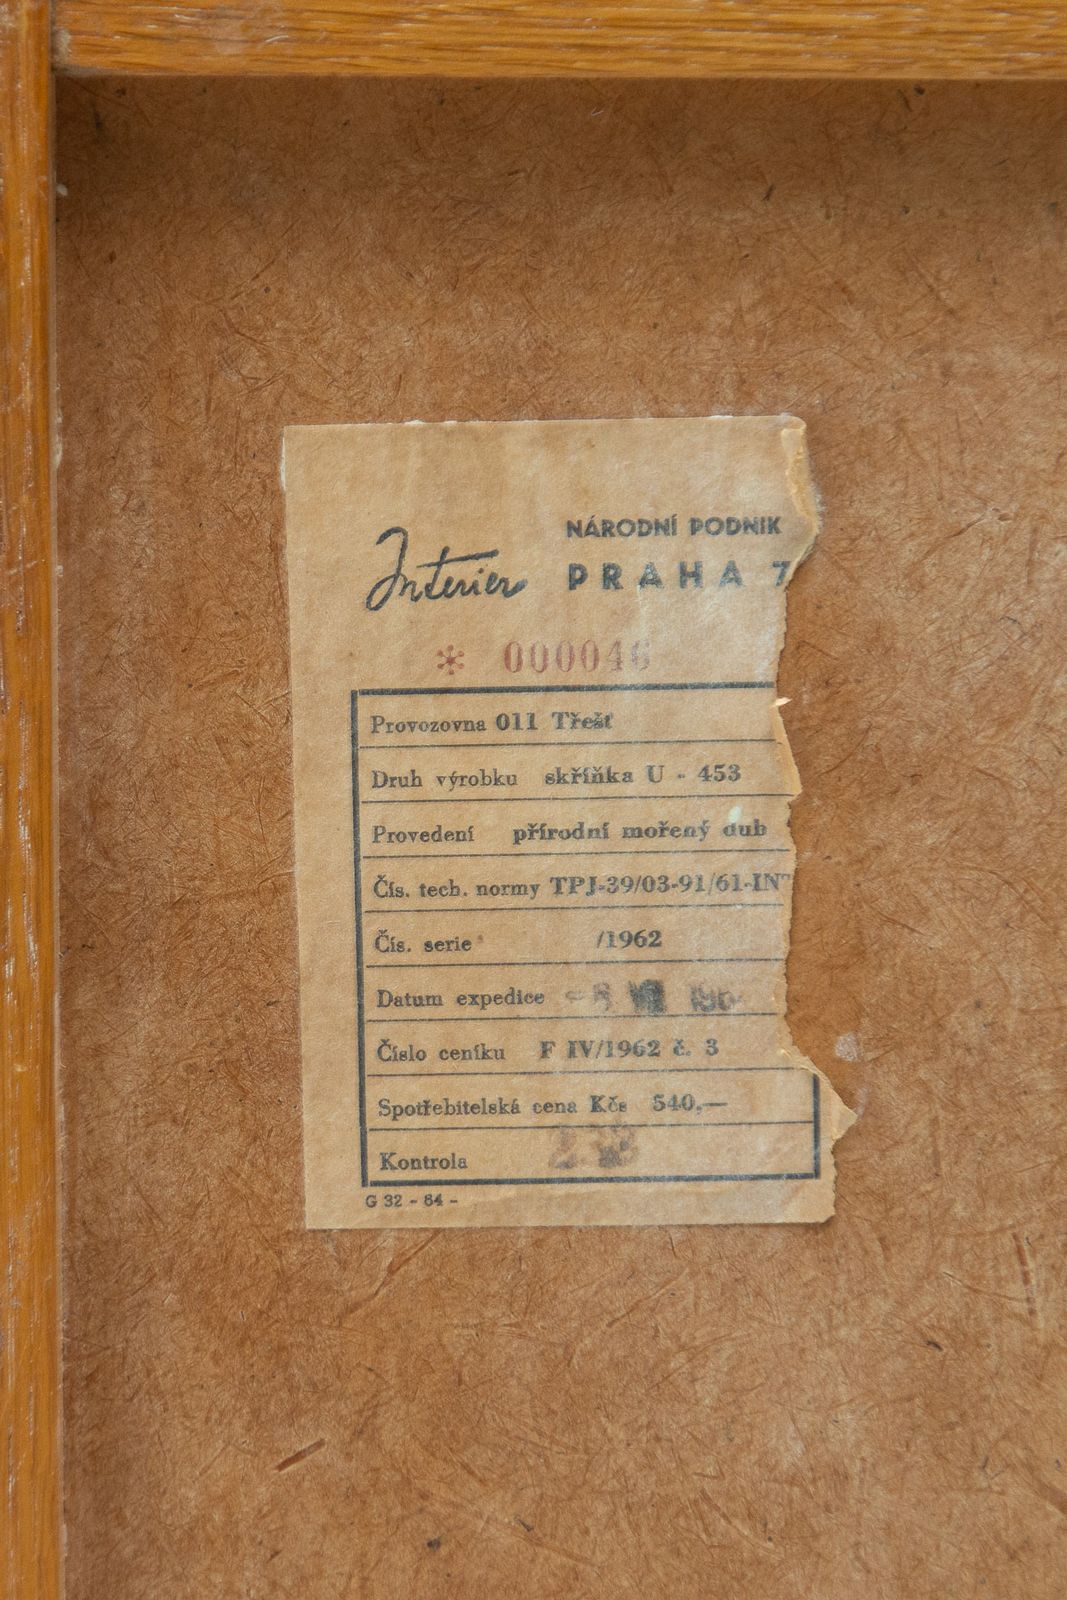 Interier
NÁRODNÍ PODNIK
PRAHA 7
* 000046
Provozovna 011 Třešť
Druh výrobku skříňka U - 453
Provedení přírodní mořený dub
Čís. tech. normy TPJ-39/03-91/61-INT
Čís. serie /1962
Datum expedice
Číslo ceníku F IV/1962 č. 3
Spotřebitelská cena Kčs 540,—
Kontrola
G 32 - 64 -